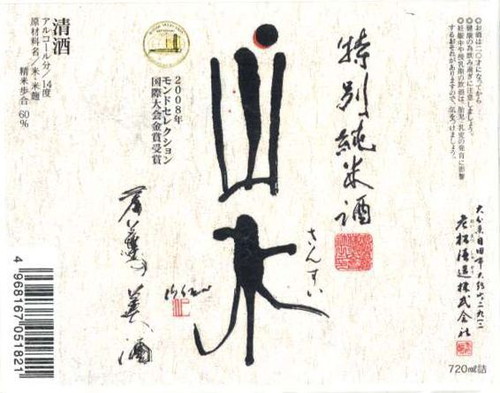 ○お酒は二〇才になってから
○健康の為飲み過ぎに注意しましょう。
○妊娠中や授乳期の飲酒は、胎児・乳児の発育に影響
するおそれがありますので、気をつけましょう。
特別純米酒
山水
さんすい
2008年
モンドセレクション
国際大会金賞受賞
清酒
アルコール分/14度
原材料名/米・米麹
精米歩合 60%
老松酒造株式会社
720ml詰
4 968167 051821